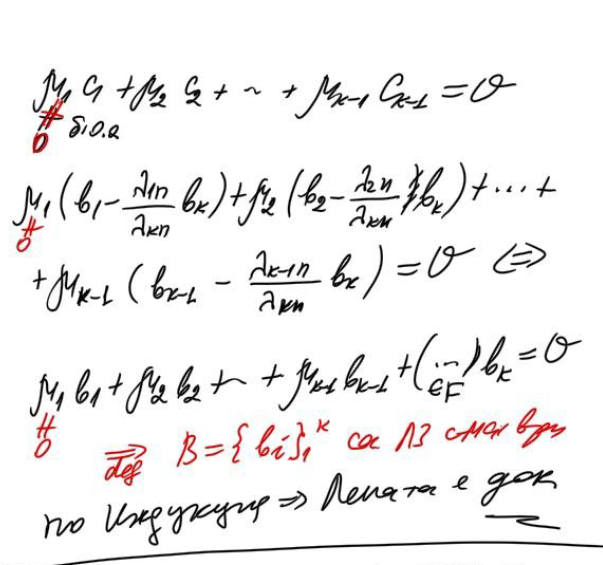 μ₁ c₁ + μ₂ c₂ + ~ + μₖ₋₁ cₖ₋₁ = 𝒪
≠ 0 б.о.о.
μ₁ (b₁ - λ₁ₙ/λₖₙ bₖ) + μ₂ (b₂ - λ₂ₙ/λₖₙ bₖ) + ... +
≠ 0
+ μₖ₋₁ (bₖ₋₁ - λₖ₋₁ₙ/λₖₙ bₖ) = 𝒪 ⇔
μ₁ b₁ + μ₂ b₂ + ~ + μₖ₋₁ bₖ₋₁ + (...) bₖ = 𝒪
≠ 0 ∈F
⇒ def B = {bi}₁ᵏ са ЛЗ
по Индукция ⇒ Лемата е док